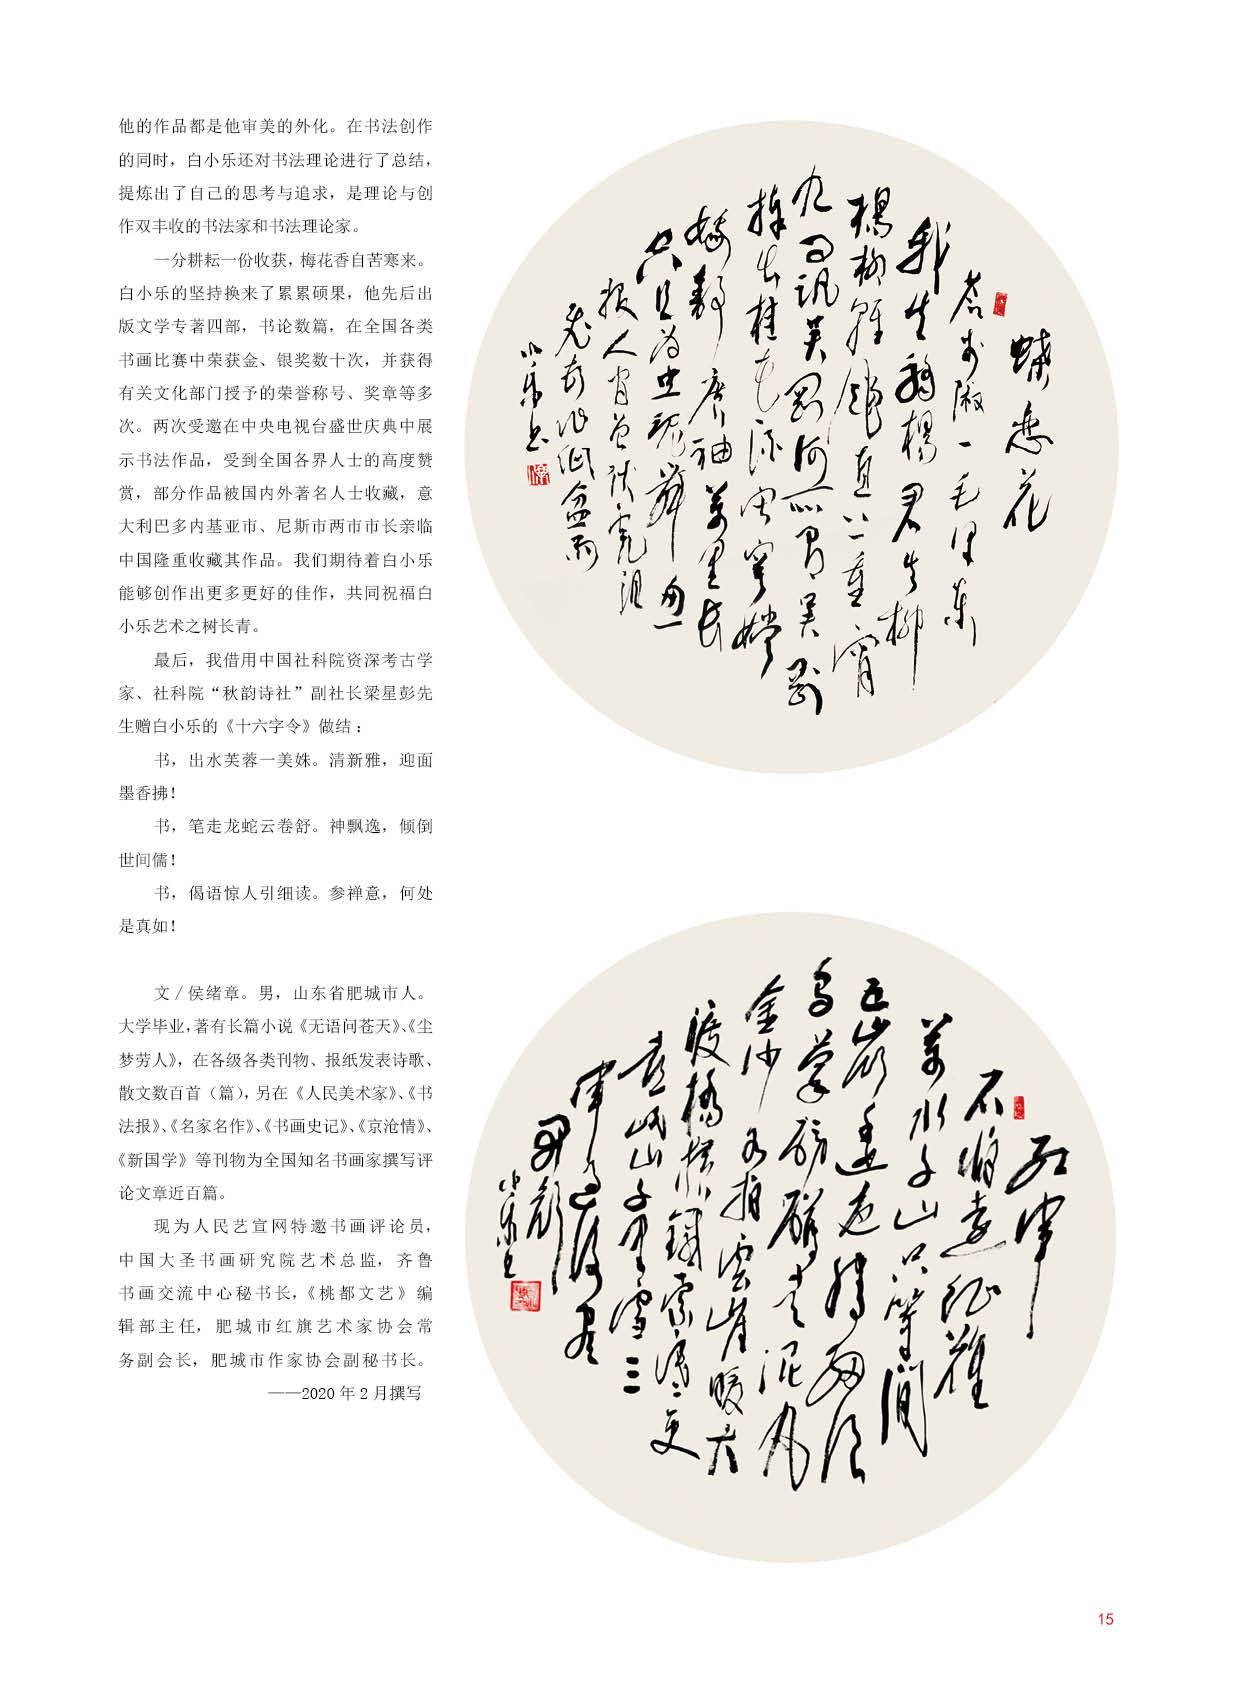 他的作品都是他审美的外化。在书法创作
的同时，白小乐还对书法理论进行了总结，
提炼出了自己的思考与追求，是理论与创
作双丰收的书法家和书法理论家。
一分耕耘一份收获，梅花香自苦寒来。
白小乐的坚持换来了累累硕果，他先后出
版文学专著四部，书论数篇，在全国各类
书画比赛中荣获金、银奖数十次，并获得
有关文化部门授予的荣誉称号、奖章等多
次。两次受邀在中央电视台盛世庆典中展
示书法作品，受到全国各界人士的高度赞
赏，部分作品被国内外著名人士收藏，意
大利巴多内基亚市、尼斯市两市市长亲临
中国隆重收藏其作品。我们期待着白小乐
能够创作出更多更好的佳作，共同祝福白
小乐艺术之树长青。
最后，我借用中国社科院资深考古学
家、社科院“秋韵诗社”副社长梁星彭先
生赠白小乐的《十六字令》做结：
书，出水芙蓉一美姝。清新雅，迎面
墨香拂！
书，笔走龙蛇云卷舒。神飘逸，倾倒
世间儒！
书，偈语惊人引细读。参禅意，何处
是真如！
文／侯绪章。男，山东省肥城市人。
大学毕业，著有长篇小说《无语问苍天》、《尘
梦劳人》，在各级各类刊物、报纸发表诗歌、
散文数百首（篇），另在《人民美术家》、《书
法报》、《名家名作》、《书画史记》、《京沧情》、
《新国学》等刊物为全国知名书画家撰写评
论文章近百篇。
现为人民艺宣网特邀书画评论员，
中国大圣书画研究院艺术总监，齐鲁
书画交流中心秘书长，《桃都文艺》编
辑部主任，肥城市红旗艺术家协会常
务副会长，肥城市作家协会副秘书长。
——2020 年 2 月撰写
蝶恋花
答李淑一毛泽东
我失骄楊君失柳
楊柳轻飏直上重霄
九问讯吴刚何所有吴刚
捧出桂花酒寂寞嫦
娥舒广袖萬里长
空且为忠魂舞忽
报人间曾伏虎泪
飞顿作倾盆雨
小乐书
红军
不怕远征難
萬水千山只等閒
五岭逶迤腾细浪
乌蒙磅礴走泥丸
金沙水拍雲崖暖大
渡橋横鐵索寒更
喜岷山千里雪三
军过后尽
开颜
小乐书
15